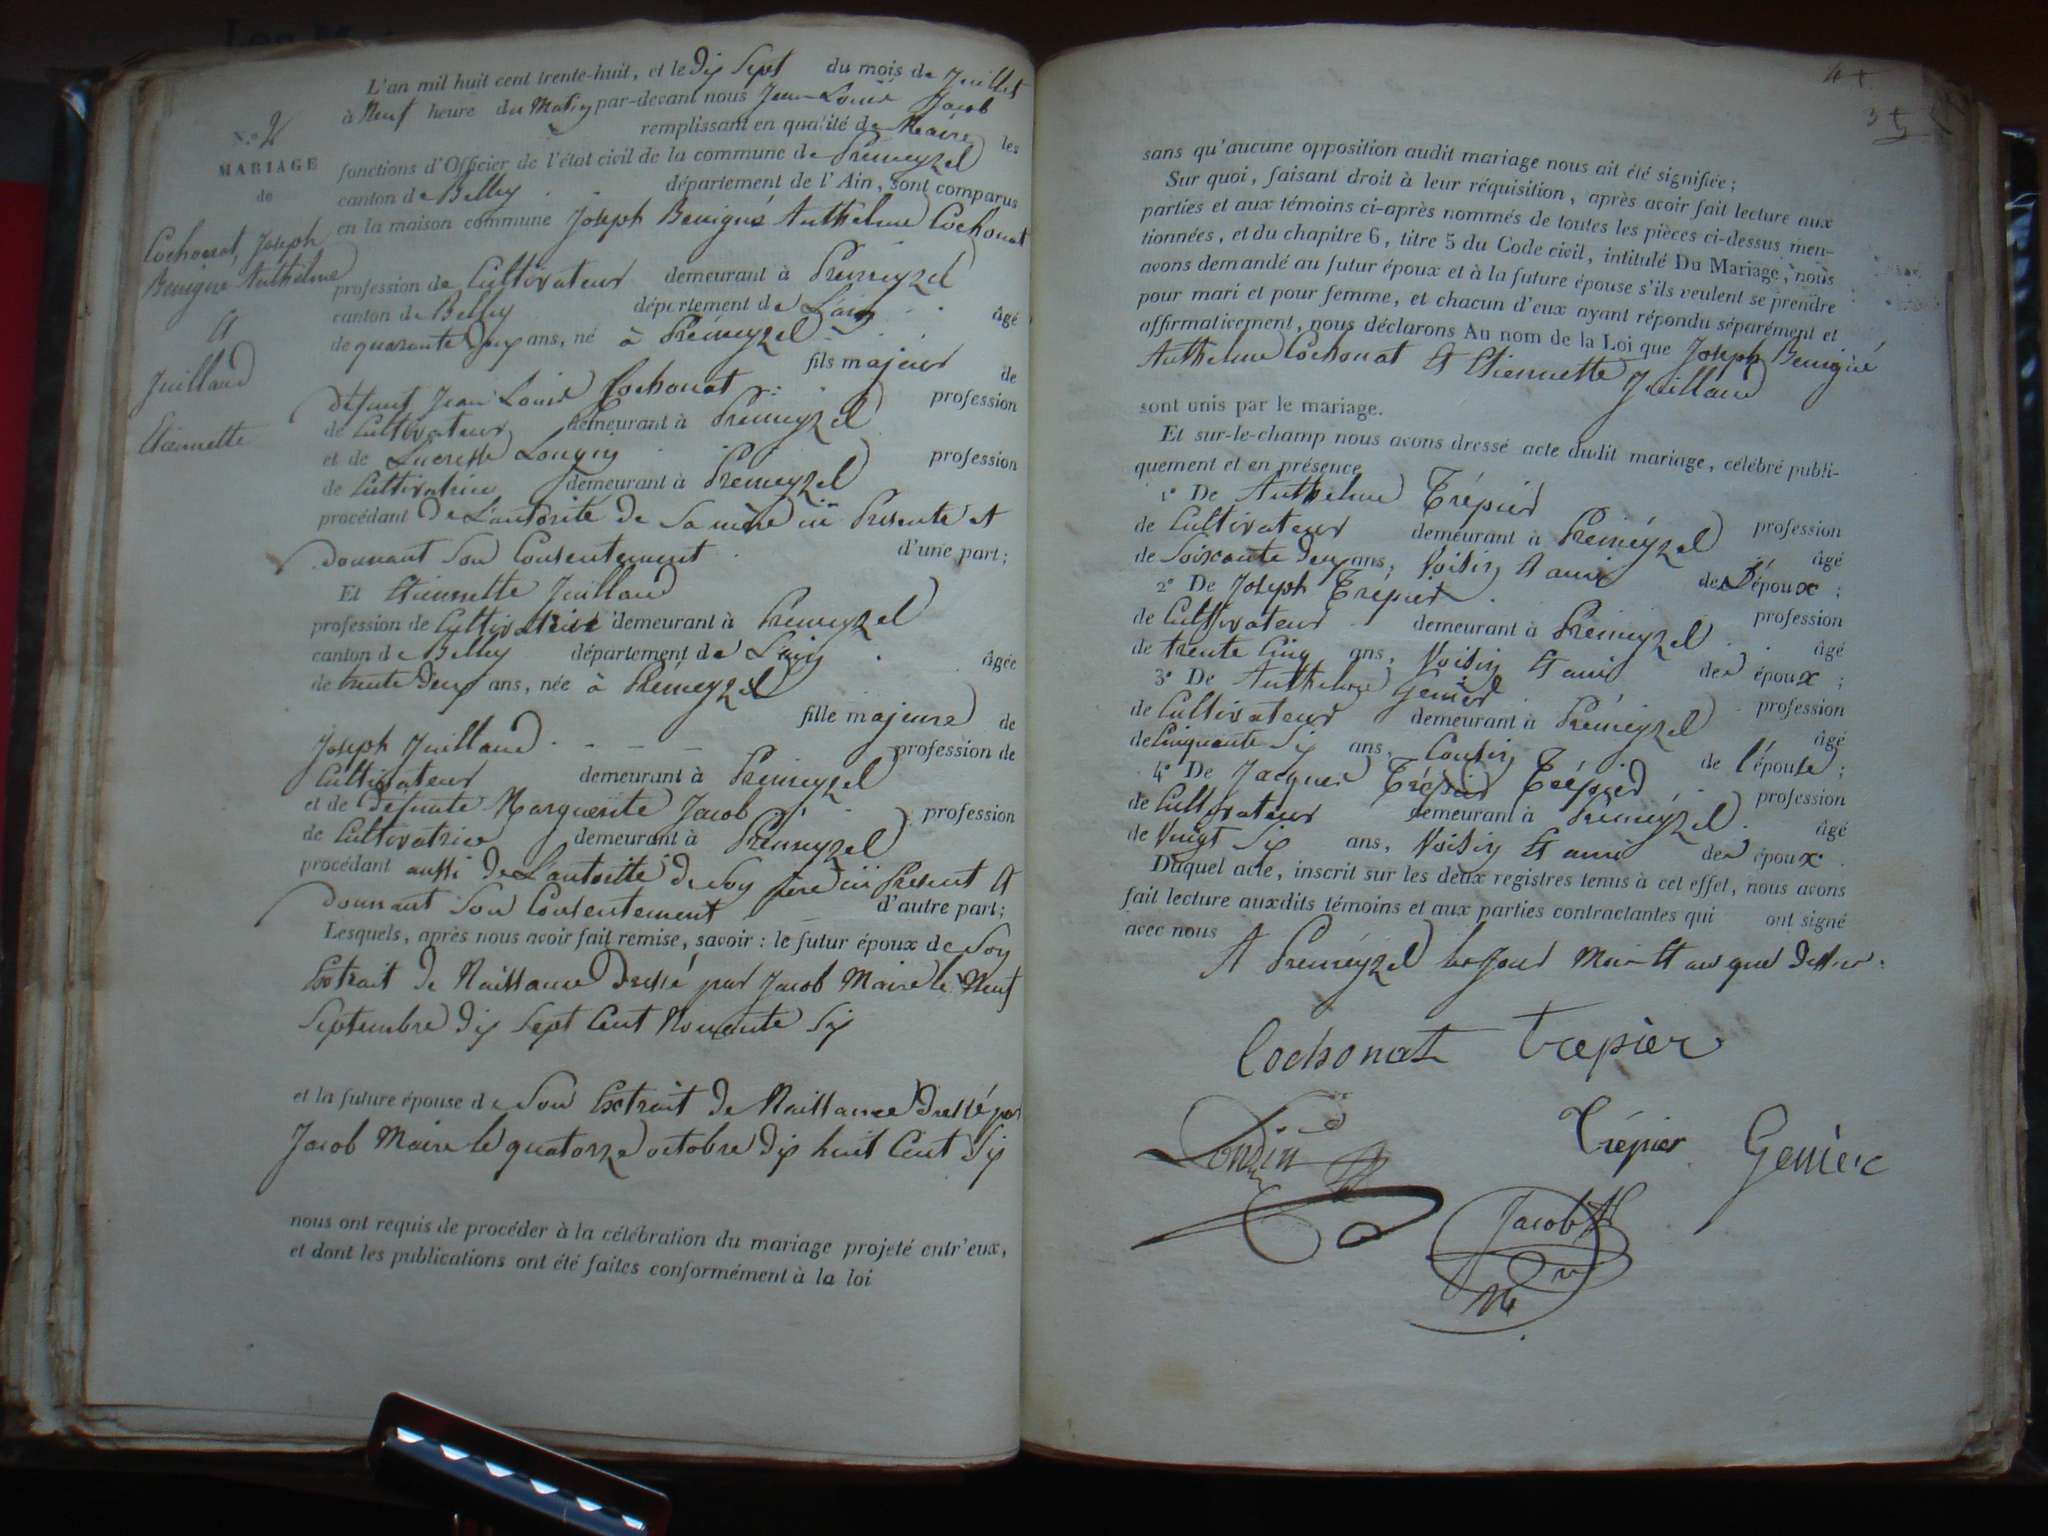 L'an mil huit cent trente-huit, et le Dix Sept du mois de Juillet
à Neuf heure du Matin par-devant nous Jean Louis Jacob
remplissant en qualité de Maire les
fonctions d'Officier de l'état civil de la commune de Prémeyzel
canton de Belley département de l'Ain, sont comparus
en la maison commune Joseph Benigné Anthelme Cochonat
profession de Cultivateur demeurant à Premeyzel
canton de Belley département de L'ain âgé
de quarante Deux ans, né à Prémeyzel
fils majeur de
défunt Jean Louis Cochonat profession
de Cultivateur demeurant à Premeyzel
et de Lucresse profession
de Cultivatrice demeurant à Premeyzel
procédant De L'autorite de Sa mère ici Presente et
Donnant Son Consentement d'une part;
Et Etiennette Juilland
profession de Cultivatrice demeurant à Prémeyzel
canton de Belley département de L'ain âgée
de trente Deux ans, née à Prémeyzel
fille majeure de
Joseph Juilland profession de
Cultivateur demeurant à Prémeyzel
et de défunte Marguerite Jacob profession
de Cultivatrice demeurant à Prémeyzel
procédant aussi De L'autorité de Son père ici Present et
Donnant Son Consentement d'autre part;
Lesquels, après nous avoir fait remise, savoir: le futur époux de Son
Extrait de Naissance Dressé par Jacob Maire le Neuf
Septembre Dix Sept Cent Nonante Six
et la future épouse de Son Extrait de Naissance Dressé par
Jacob Maire le quatorze octobre Dix huit Cent Six
nous ont requis de procéder à la célébration du mariage projeté entr'eux,
et dont les publications ont été faites conformément à la loi
N.º 2
MARIAGE
de
Cochonat, Joseph
Benigne Anthelme
Et
Juilland
Etiennette
sans qu'aucune opposition audit mariage nous ait été signifiée;
Sur quoi, faisant droit à leur réquisition, après avoir fait lecture aux
parties et aux témoins ci-après nommés de toutes les pièces ci-dessus men-
tionnées, et du chapitre 6, titre 5 du Code civil, intitulé Du Mariage, nous
avons demandé au futur époux et à la future épouse s'ils veulent se prendre
pour mari et pour femme, et chacun d'eux ayant répondu séparément et
affirmativement, nous déclarons Au nom de la Loi que Joseph Benigné
Anthelme Cochonat Et Etiennette Juilland
sont unis par le mariage.
Et sur-le-champ nous avons dressé acte dudit mariage, célébré publi-
quement et en présence
1º De Anthelme Trépier profession
de Cultivateur demeurant à Prémeyzel âgé
de Soixante Deux ans, Voisin Et ami des époux;
2º De Joseph Trépier profession
de Cultivateur demeurant à Premeyzel âgé
de trente Cinq ans, Voisin Et ami des époux;
3º De Anthelme Genier profession
de Cultivateur demeurant à Prémeyzel âgé
de Cinquante Six ans, Cousin de l'épouse;
4º De Jacques Trépier Trépier profession
de Cultivateur demeurant à Prémeyzel âgé
de Vingt Six ans, Voisin Et ami des époux
Duquel acte, inscrit sur les deux registres tenus à cet effet, nous avons
fait lecture auxdits témoins et aux parties contractantes qui ont signé
avec nous
A Prémeyzel les Jour Mois Et an que Dessus
Cochonat Trepier
Trépier Genier
Jacob